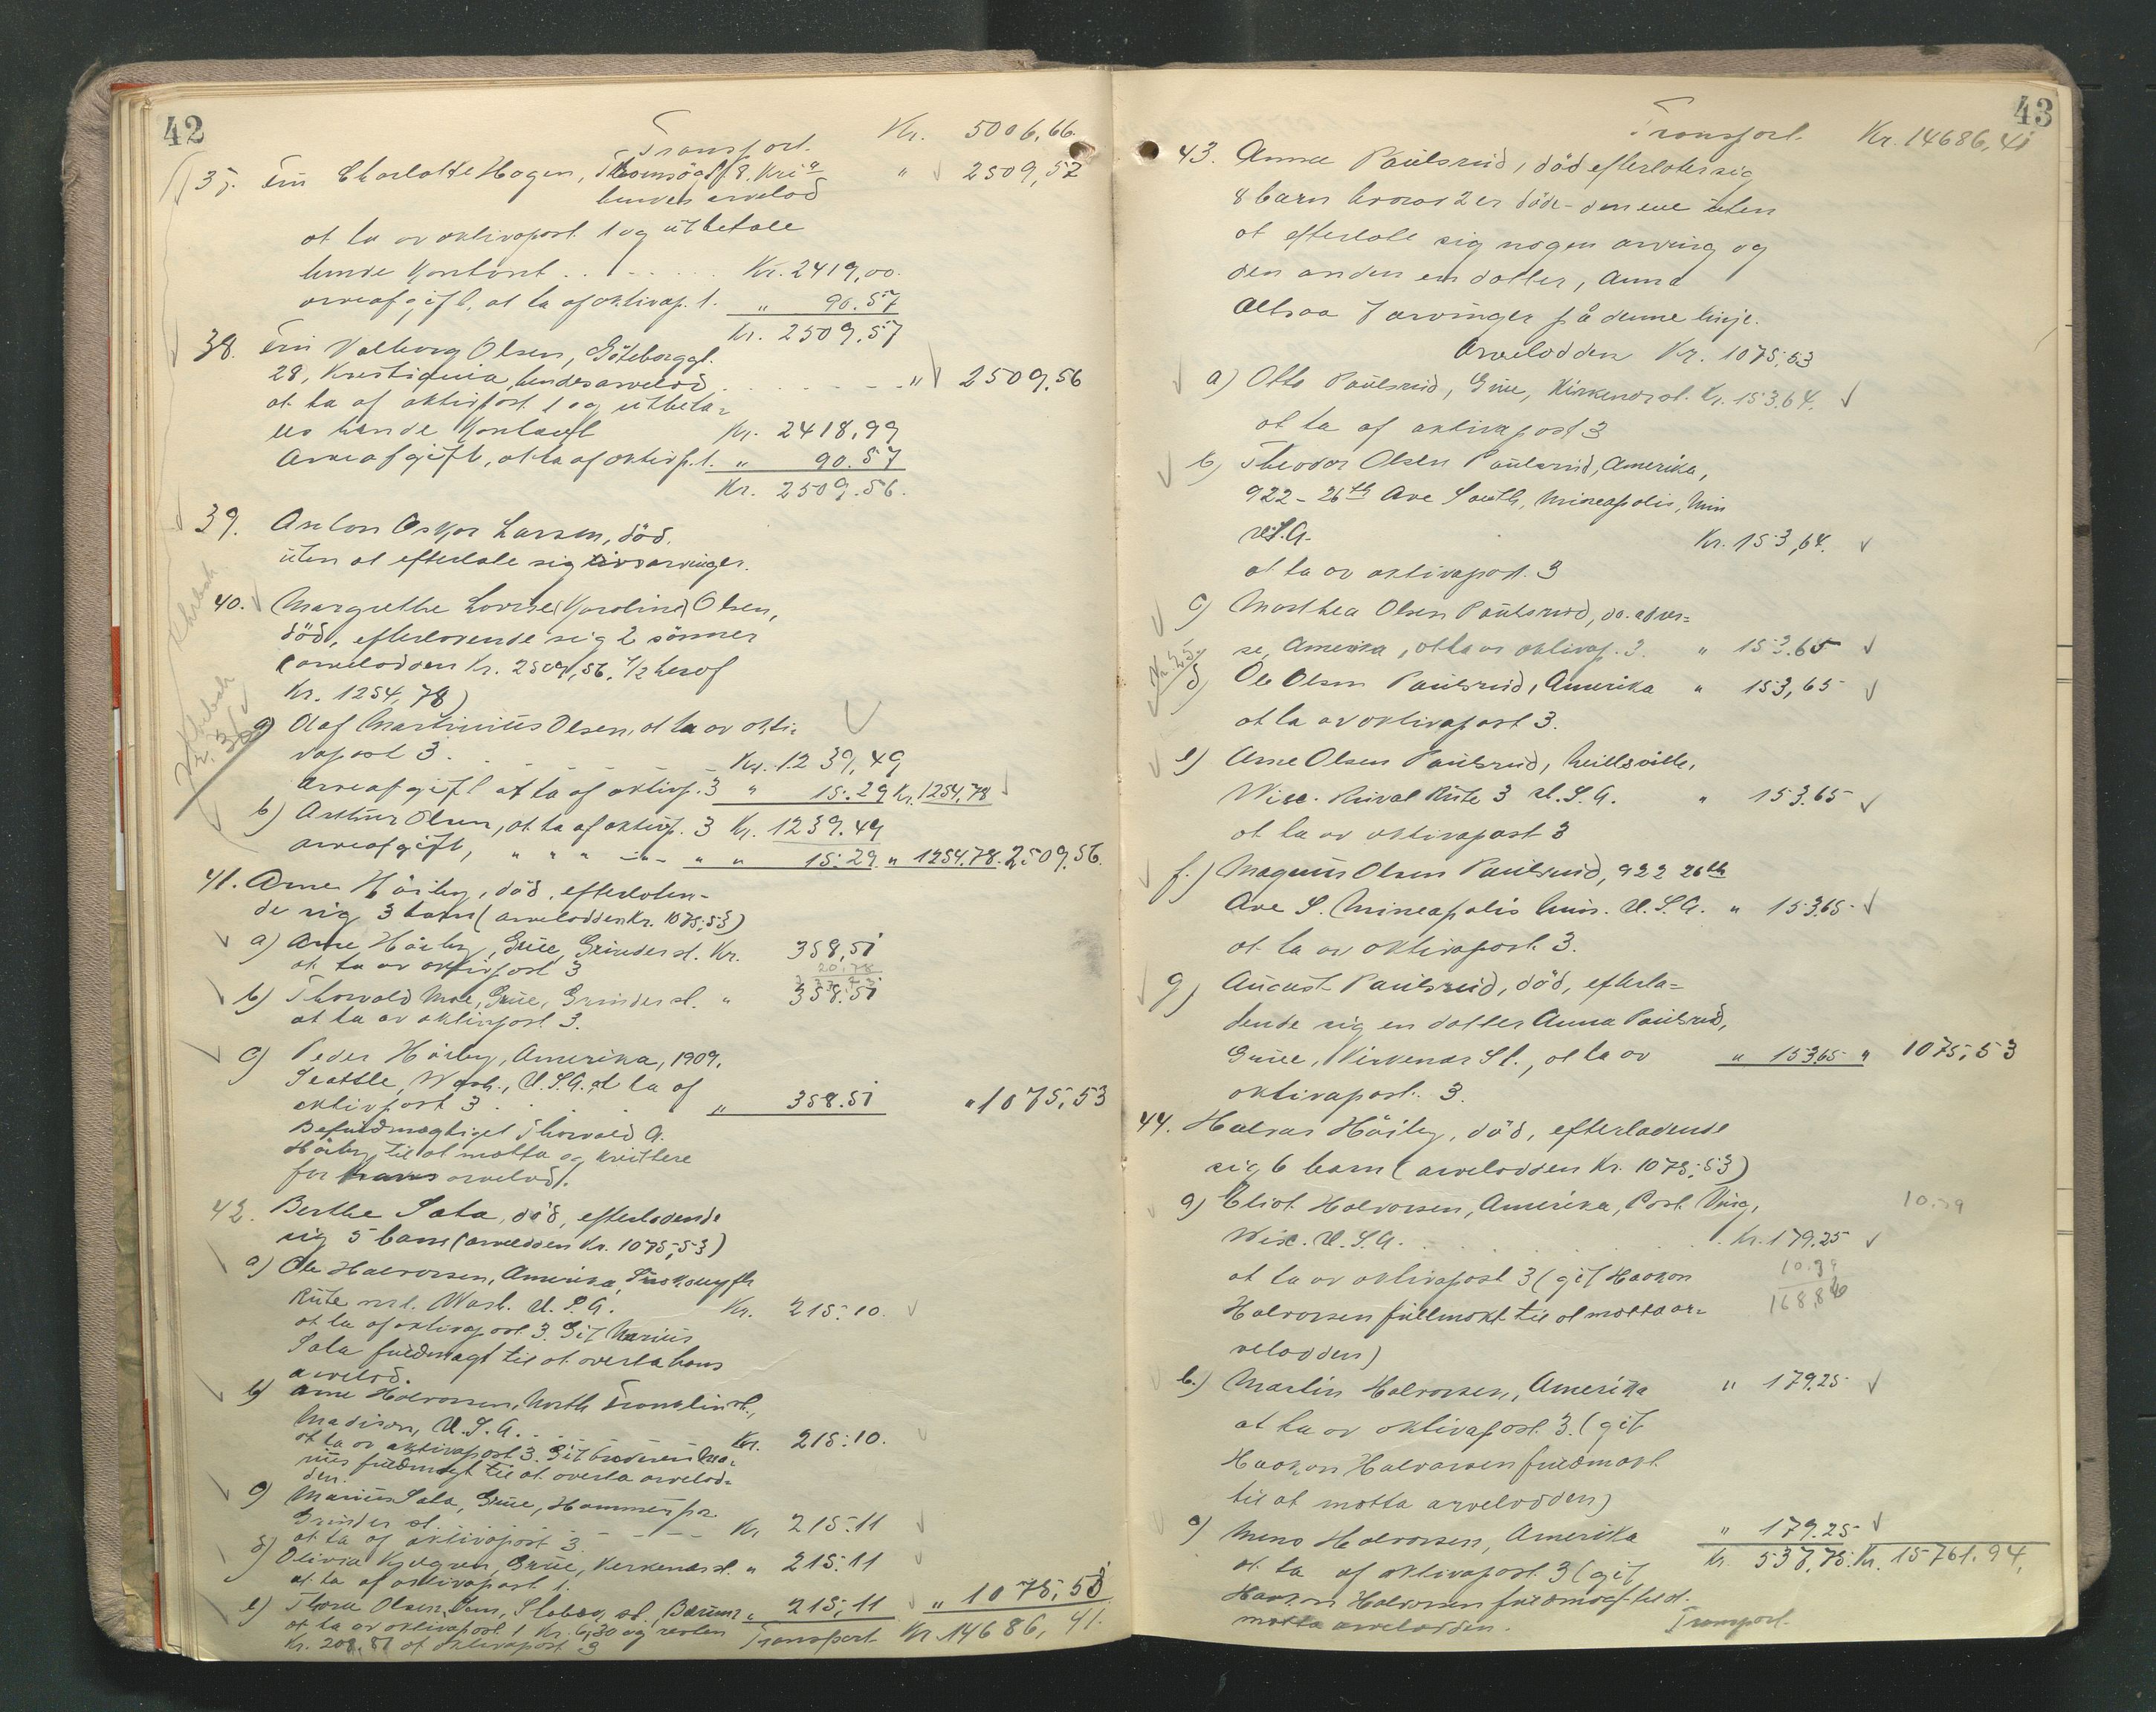 42
Transport. Kr. 5006,66.
37. Fru Charlotte Hagen, gt. 8. Kr.a " 2509,57
hendes arvelod
at ta av aktivapost 1 og utbetale
hende kontant . . . . . . Kr. 2419,00.
arveafgift, at ta af aktivap. 1. " 90.57
Kr. 2509.57
38. Fru Valborg Olsen, Göteborggt.
28, Kristiania, hendes arvelod . . . . . . " 2509.56
at ta af aktivpost 1 og utbeta=
les hende kontant Kr. 2418,99
Arveafgift, at ta af aktivp. 1. " 90.57
Kr. 2509.56.
39. Anton Oskar Larsen, död.
uten at efterlate sig livsarvinger.
40. Margrethe Lovise (Karoline) Olsen,
död, efterlatende sig 2 sönner
(arvelodden Kr. 2509,56, 1/2 herof
Kr. 1254,78)
a) Olaf Martinius Olsen, at ta av akti=
vapost 3. Kr. 1239,49
Arveafgift at ta af aktivp. 3 " 15.29 Kr. 1254,78
b) Arthur Olsen, at ta af aktivp. 3 Kr. 1239.49
arveafgift, " " " " " 15.29 " 1254.78. 2509.56.
41. Arne Höiby, död, efterlaten-
de sig 3 barn (arvelodden Kr. 1075,53)
a) Arne Höiby, Grue, Grinder st. Kr. 358,51
at ta av aktivpost 3
20.78
b) Thorvald Moe, Grue, Grinder st. " 358.51
at ta av aktivpost 3.
c) Peder Höiby, Amerika, 1909,
Seattle, Wash., U.S.A. at ta af
aktivpost 3 . . . " 358.51 " 1075,53
Befuldmægtiget Thorvald A.
Höiby til at motta og kvittere
for hans arvelod.
42. Berthe Sata, död, efterladende
sig 5 barn (arvelodden Kr. 1075,53)
a) Ole Halvorsen, Amerika,
Rute Wash. U.S.A. Kr. 215.10.
at ta af aktivapost 3. Git Marius
Sata fuldmagt til at overta hans
arvelod.
b) Arne Halvorsen, North Franklin st.,
Madison, U.S.A. . . Kr. 215.10.
at ta av aktivapost 3. Git broderen Ma=
rius fuldmagt til at overta arvelod=
den.
c) Marius Sata, Grue, Hammer pr.
Grinder st. Kr 215.11
at ta af aktivapost 3.
d) Olivia Kjelgren, Grue, Kirkenær st. " 215.11
at ta af aktivapost 1.
e) Thora Olsen, Stabæk st. Bærum " 215,11 " 1075,53
at ta av aktivapost 1 Kr. 6,30 og resten
Kr. 208,81 af aktivapost 3
Transport Kr. 14686,41.
43
Transport. Kr. 14686,41
43. Anna Paulsrud, död efterlater sig
8 barn hvorav 2 er döde - den ene uten
at efterlate sig nogen arving og
den anden en datter, Anna
Altsaa 7 arvinger på denne linje.
Arvelodden Kr. 1075,53
a) Otto Paulsrud, Grue, Kirkenær st. Kr. 153.64.
at ta af aktivapost 3
b) Theodor Olsen Paulsrud, Amerika,
922 - 26th Ave South, Mineapolis, Min
U.S.A. Kr. 153,64.
at ta av aktivapost. 3
c) Marthea Olsen Paulsrud, do. adres=
se, Amerika, at ta av aktivap. 3. " 153.65
d) Ole Olsen Paulsrud, Amerika " 153,65
at ta av aktivapost 3.
e) Arne Olsen Paulsrud, Neillsville,
Wisc. Rural Rute 3 U.S.A. " 153.65
at ta av aktivapost 3
f.) Magnus Olsen Paulsrud, 922 26th
Ave S. Mineapolis Min. U.S.A. " 153.65
at ta av aktivapost. 3.
g) August Paulsrud, död, efterla=
tende sig en datter Anna Paulsrud,
Grue, Kirkenær St., at ta av " 153.65 " 1075,53
aktivapost. 3.
44. Halvar Höiby, död, efterladende
sig 6 barn (arvelodden Kr. 1075,53)
a) Eliot Halvorsen, Amerika, Post 10.79
Wisc. U.S.A. . . . . Kr. 179.25
at ta av aktivapost 3 (git Haakon 10.39
Halvorsen fullmakt til at motta ar= 168,86
velodden)
b.) Martin Halvorsen, Amerika " 179.25
at ta av aktivapost 3. (git
Haakon Halvorsen fuldmakt
til at motta arvelodden)
c) Halvorsen, Amerika " 179.25
at ta af aktivapost 3 (git Kr. 537,75. Kr. 15761.94.
Haakon Halvorsen fuldmagt til at
motta arvelodden. Transport.